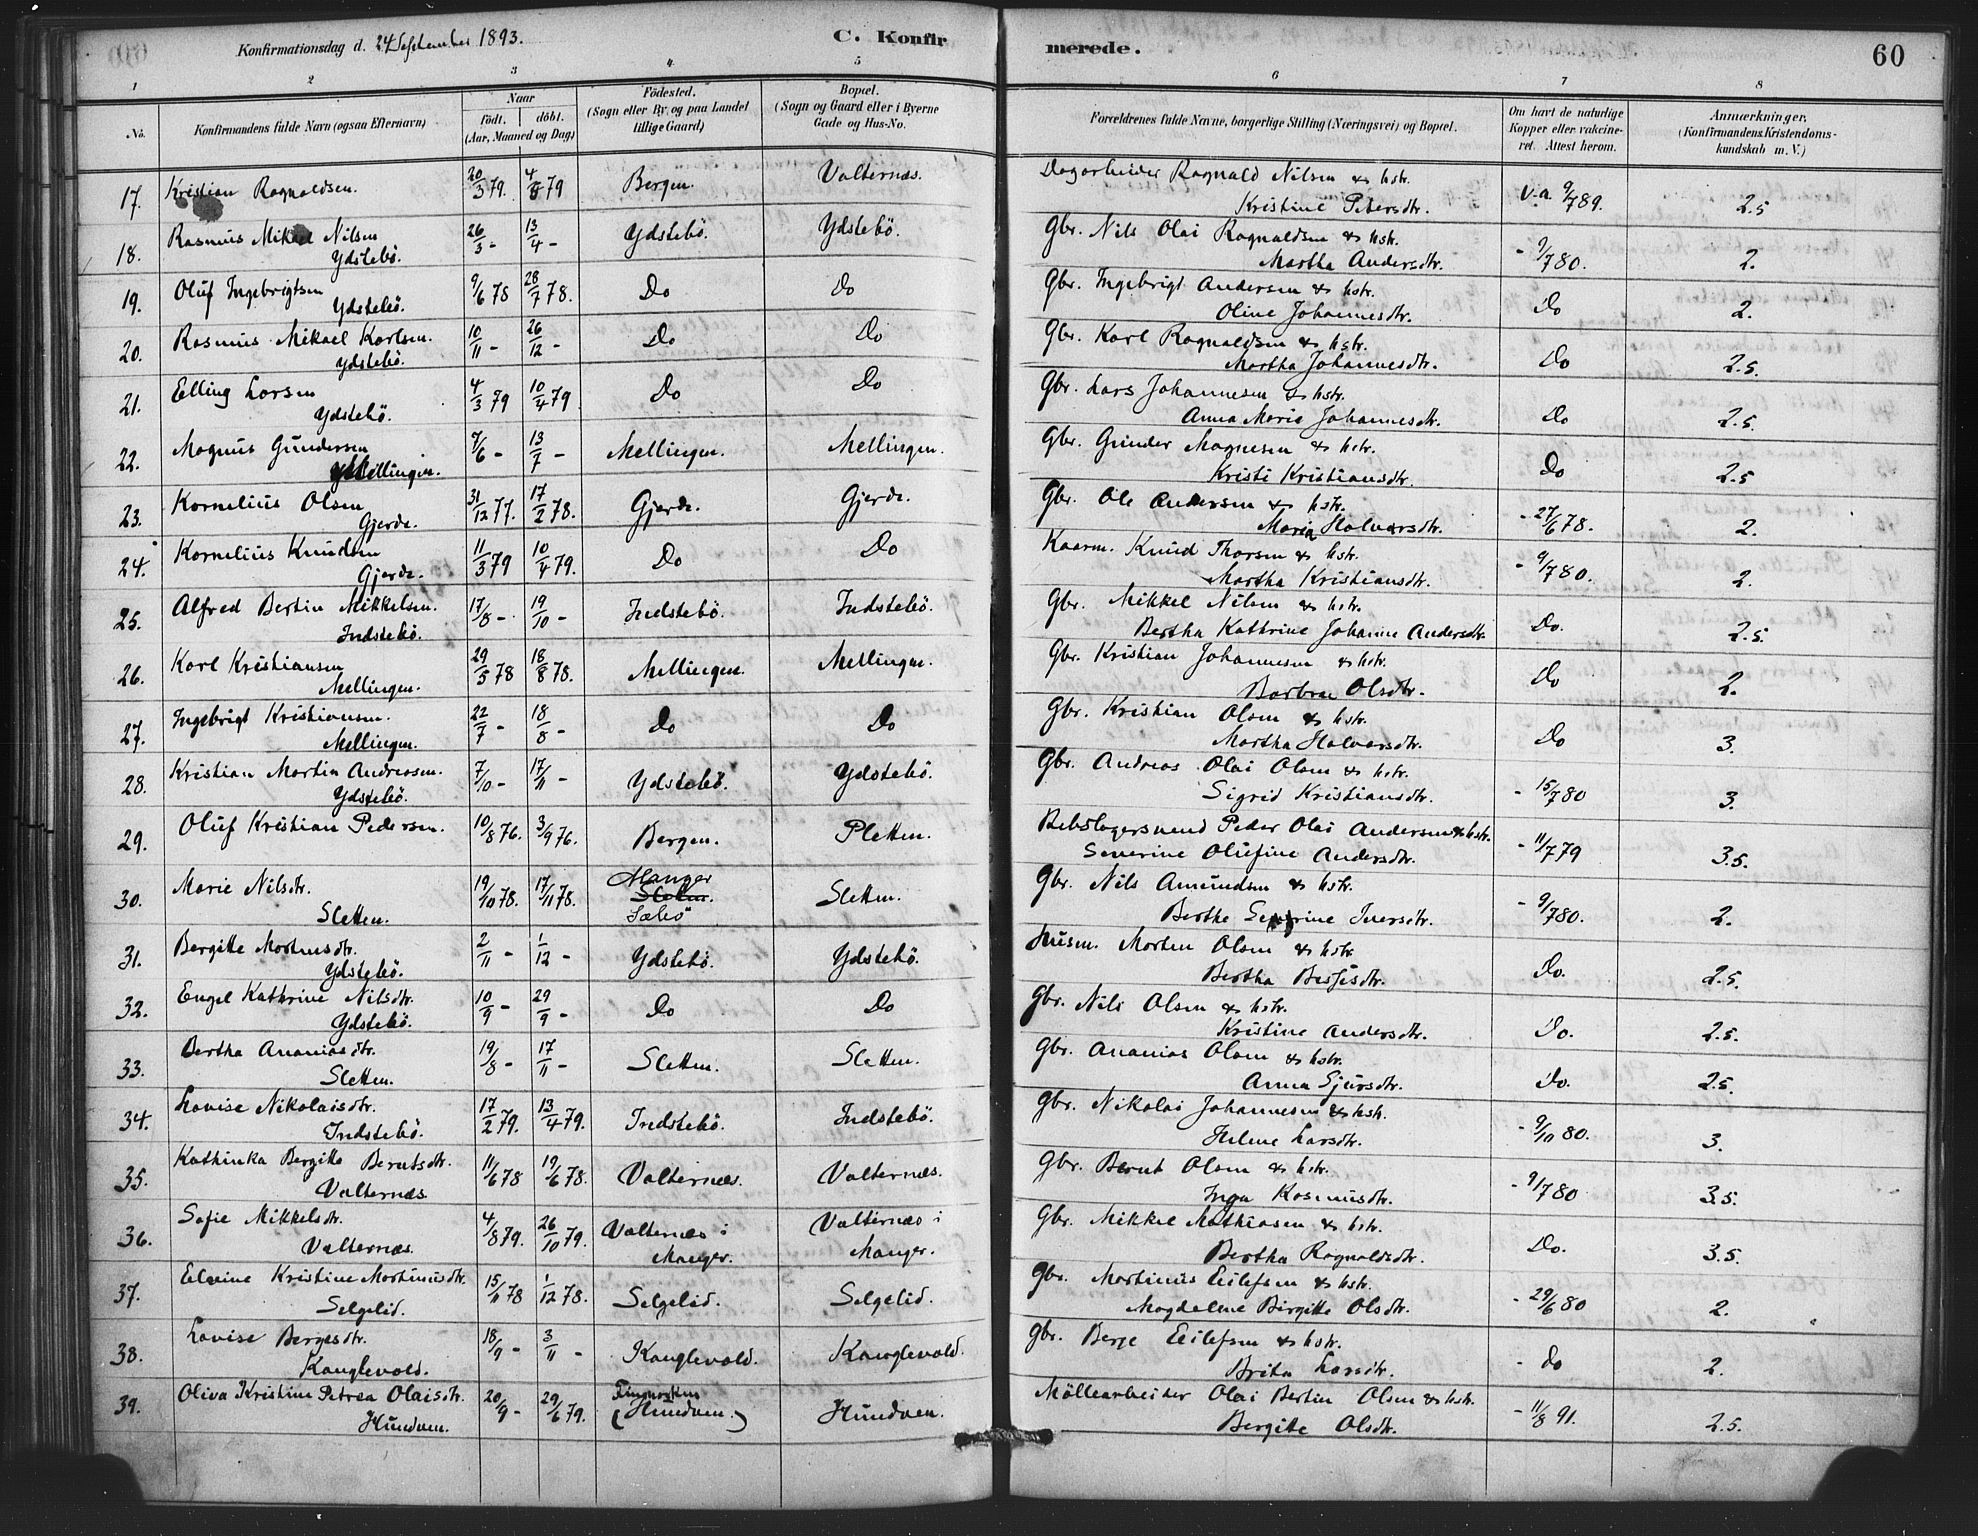 Konfirmationsdag d. 24 September 1893. C. Konfir merede. 60
1 2 3 4. 5 6 7 8
No. Konfirmandens fulde Navn (ogsaa Efternavn) Naar födt. döbt. (Aar, Maaned og Dag) Födested. (Sogn eller By, og paa Landet tillige Gaard) Bopæl. (Sogn og Gaard eller i Byerne Gade og Hus-No. Forældrenes fulde Navne, borgerlige Stilling (Næringsvei) og Bopæl. Om havt de naturlige Kopper eller vakcineret. Attest herom. Anmærkninger. (Konfirmandens Kristendomskundskab m. V.)
17. Kristian Ragnaldsen. 20/3 79. 4/5 79 Bergen. Valternæs. Dagarbeider Ragnald Nilsen & hstr. Kristine Petersdtr. v.a. 9/7 89. 2.5
18. Rasmus Mikael Nilsen Ydstebö. 26/3 - 13/4 - Ydstebö. Ydstebö. Gbr. Nils Olai Ragnaldsen & hstr. Martha Andersdtr. - 9/7 80. 2.
19. Oluf Ingebrigtsen Ydstebö. 9/6 78 28/7 78. Do Do Gbr. Ingebrigt Andersen & hstr. Oline Johannesdtr. Do 2.
20. Rasmus Mikael Karlsen. Ydstebö. 10/11 - 26/12 - Do Do Gbr. Karl Ragnaldsen & hstr. Martha Johannesdtr. Do 2.5.
21. Elling Larsen Ydstebö. 4/3 79 10/4 79. Do Do Gbr. Lars Johannesen & hstr. Anna Maria Johannesdtr. Do 2.5.
22. Magnus Gundersen Mellingen. 7/6 - 13/7 - Mellingen. Mellingen. Gbr. Gunder Magnesen & hstr. Kristi Kristiansdtr. Do 2.5
23. Kornelius Olsen Gjerde. 31/12 77. 17/2 78. Gjerde. Gjerde. Gbr. Ole Andersen & hstr. Maria Halvarsdtr. - 27/6 78. 2.
24. Kornelius Knudsen Gjerde. 11/3 79 10/4 79. Do Do Kaarm. Knud Thorsen & hstr. Martha Kristiansdtr. - 9/7 80. 2.
25. Alfred Bertin Mikkelsen. Indstebö. 17/8 - 19/10 - Indstebö. Indstebö. Gbr. Mikkel Nilsen & hstr. Bertha Kathrine Johanne Andersdtr. Do. 2.5.
26. Karl Kristiansen Mellingen. 29/5 78 18/8 78. Mellingen. Mellingen. Gbr. Kristian Johannesen & hstr. Barbra Olsdtr. Do 2.
27. Ingebrigt Kristiansen. Mellingen. 22/7 - 18/8 - Do Do Gbr. Kristian Olsen & hstr. Martha Halvarsdtr. Do 3.
28. Kristian Martin Andreasen. Ydstebö. 7/10 - 17/11 - Ydstebö. Ydstebö. Gbr. Andreas Olai Olsen & hstr. Sigrid Kristiansdtr. - 15/7 80 3.
29. Oluf Kristian Pedersen. 10/8 76. 3/9 76. Bergen. Pletten. Rebslagersvend Peder Olai Andersen & hstr. Severine Olufine Andersdtr. - 11/7 79 3.5.
30. Marie Nilsdtr. Sletten. 19/10 78. 17/11 78. Manger Sletten. Sæbö Sletten. Gbr. Nils Amundsen & hstr. Berthe Severine Iversdtr. - 9/7 80. 2.
31. Bergitte Mortensdtr. Ydstebö. 2/11 - 1/12 - Ydstebö. Ydstebö. Husm. Morten Olsen & hstr. Bertha dtr. Do. 2.5.
32. Engel Kathrine Nilsdtr. Ydstebö. 10/9 - 29/9 - Do Do Gbr. Nils Olsen & hstr. Kristine Andersdtr. Do. 2.5.
33. Bertha Ananiasdtr. Sletten. 19/8 - 17/11 - Sletten. Sletten. Gbr. Ananias Olsen & hstr. Anna Sjursdtr. Do. 2.5.
34. Lovise Nikolaisdtr. Indstebö. 17/2 79. 13/4 79. Indstebö. Indstebö. Gbr. Nikolai Johannesen & hstr. Helene Larsdtr. - 9/10 80. 3.
35. Kathinka Bergitte Berntsdtr. Valternæs. 11/6 78 19/6 78. Valternæs. Valternæs. Gbr. Bernt Olsen & hstr. Inga Rasmusdtr. - 9/7 80 3.5.
36. Sofie Mikkelsdtr. Valternæs. 4/8 79. 26/10 79. Valternæs i Manger. Valternæs i Manger. Gbr. Mikkel Mathiasen & hstr. Bertha Ragnaldsdtr. Do. 3.5.
37. Elvine Kristine Martinusdtr. Selgelid. 15/11 78 1/12 78. Selgelid. Selgelid. Gbr. Martinus Eilefsen & hstr. Magdelene Birgitte Olsdtr. - 29/6 80 2.
38. Lovise Bergesdtr. Kanglevold. 18/9 - 3/11 - Kanglevold. Kanglevold. Gbr. Berge Eilefsen & hstr. Brita Larsdtr. - do 2.
39. Oliva Kristine Petrea Olaisdtr. Hundven. 20/9 - 29/6 79. Finmarken (Hundven.) Hundven. Möllearbeider Olai Bertin Olsen & hstr. Bergitte Olsdtr. - 11/8 91. 2.5.